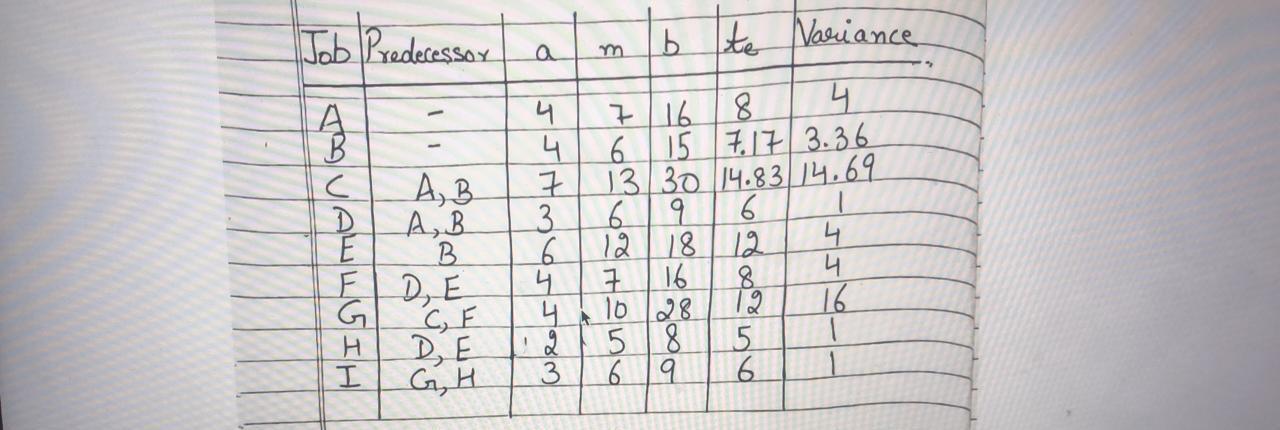 Job Predecessor a m b te Variance
A - 4 7 16 8 4
B - 4 6 15 7.17 3.36
C A, B 7 13 30 14.83 14.69
D A, B 3 6 9 6 1
E B 6 12 18 12 4
F D, E 4 7 16 8 4
G C, F 4 10 28 12 16
H D, E 2 5 8 5 1
I G, H 3 6 9 6 1